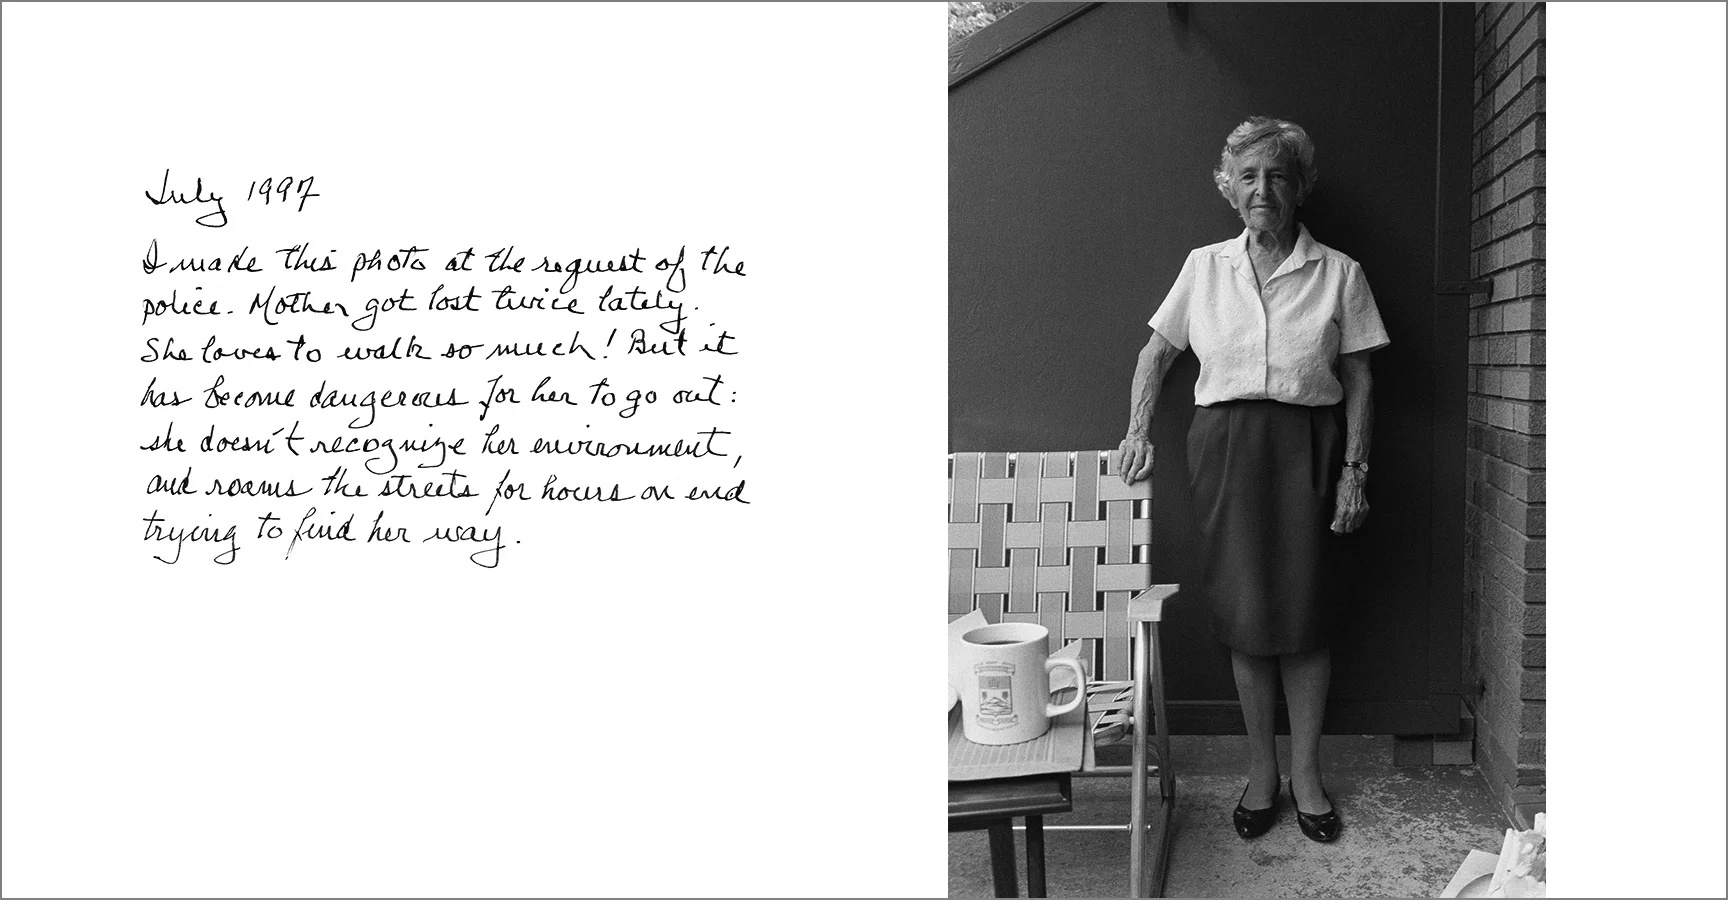 July 1997
I made this photo at the request of the
police. Mother got lost twice lately.
She loves to walk so much! But it
has become dangerous for her to go out:
she doesn't recognize her environment,
and roams the streets for hours on end
trying to find her way.